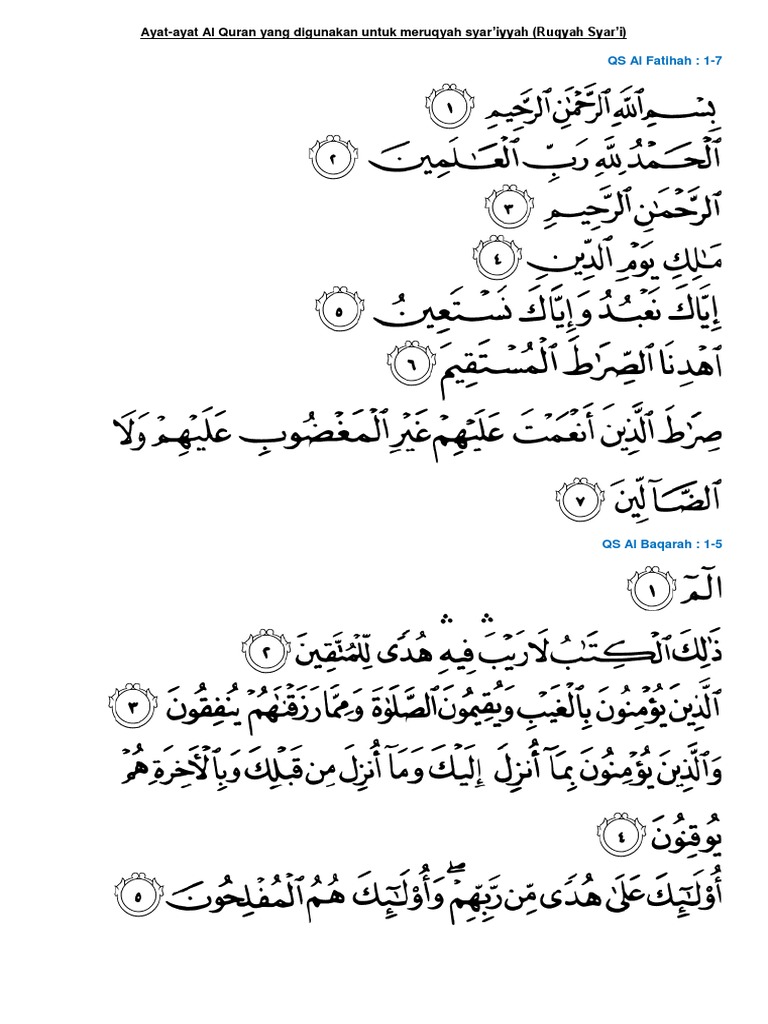 Ayat-ayat Al Quran yang digunakan untuk meruqyah syar’iyyah (Ruqyah Syar’i)
QS Al Fatihah : 1-7
بِسْمِ ٱللَّهِ ٱلرَّحْمَٰنِ ٱلرَّحِيمِ ١
ٱلْحَمْدُ لِلَّهِ رَبِّ ٱلْعَٰلَمِينَ ٢
ٱلرَّحْمَٰنِ ٱلرَّحِيمِ ٣
مَٰلِكِ يَوْمِ ٱلدِّينِ ٤
إِيَّاكَ نَعْبُدُ وَإِيَّاكَ نَسْتَعِينُ ٥
ٱهْدِنَا ٱلصِّرَٰطَ ٱلْمُسْتَقِيمَ ٦
صِرَٰطَ ٱلَّذِينَ أَنْعَمْتَ عَلَيْهِمْ غَيْرِ ٱلْمَغْضُوبِ عَلَيْهِمْ وَلَا
ٱلضَّآلِّينَ ٧
QS Al Baqarah : 1-5
الٓمٓ ١
ذَٰلِكَ ٱلْكِتَٰبُ لَا رَيْبَۛ فِيهِۛ هُدًى لِّلْمُتَّقِينَ ٢
ٱلَّذِينَ يُؤْمِنُونَ بِٱلْغَيْبِ وَيُقِيمُونَ ٱلصَّلَوٰةَ وَمِمَّا رَزَقْنَٰهُمْ يُنفِقُونَ ٣
وَٱلَّذِينَ يُؤْمِنُونَ بِمَآ أُنزِلَ إِلَيْكَ وَمَآ أُنزِلَ مِن قَبْلِكَ وَبِٱلْأَخِرَةِ هُمْ
يُوقِنُونَ ٤
أُو۟لَٰٓئِكَ عَلَىٰ هُدًى مِّن رَّبِّهِمْۖ وَأُو۟لَٰٓئِكَ هُمُ ٱلْمُفْلِحُونَ ٥